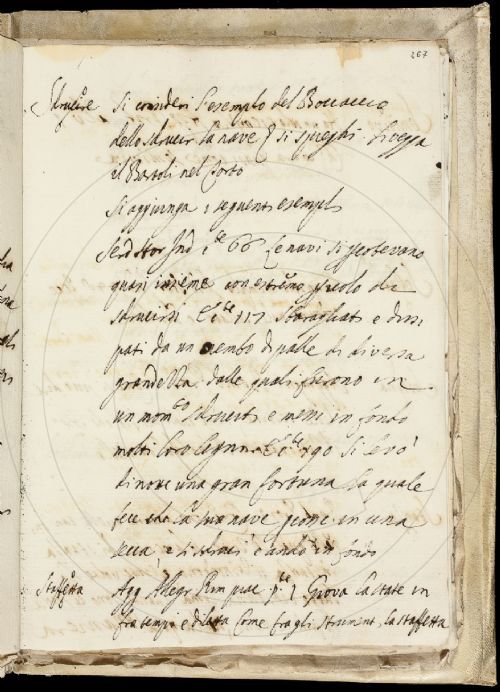 267
Sdrucire Si consideri l'esempio del Boccaccio
dello sdrucir la nave e si spieghi. Si vegga
il Bartoli nel Torto
Si aggiunga i seguenti esempi
Serd Stor Ind 66 Le navi si
quasi insieme con estremo di
sdrucirsi 117 Sbaragliati e dissi
pati da un nembo di palle di diversa
grandezza, dalle quali furono in
un mom.to sdruciti e messi in fondo
molti loro legni 190 Si levò
di nuovo una gran fortuna la quale
fece che la sua nave in una
secca, e si sdrucì e andò in fondo
Staffetta Agg Allegr Rim piac p.te 1 Giova la state in
fra tempo e diletta Come fra gli strumenti, la staffetta